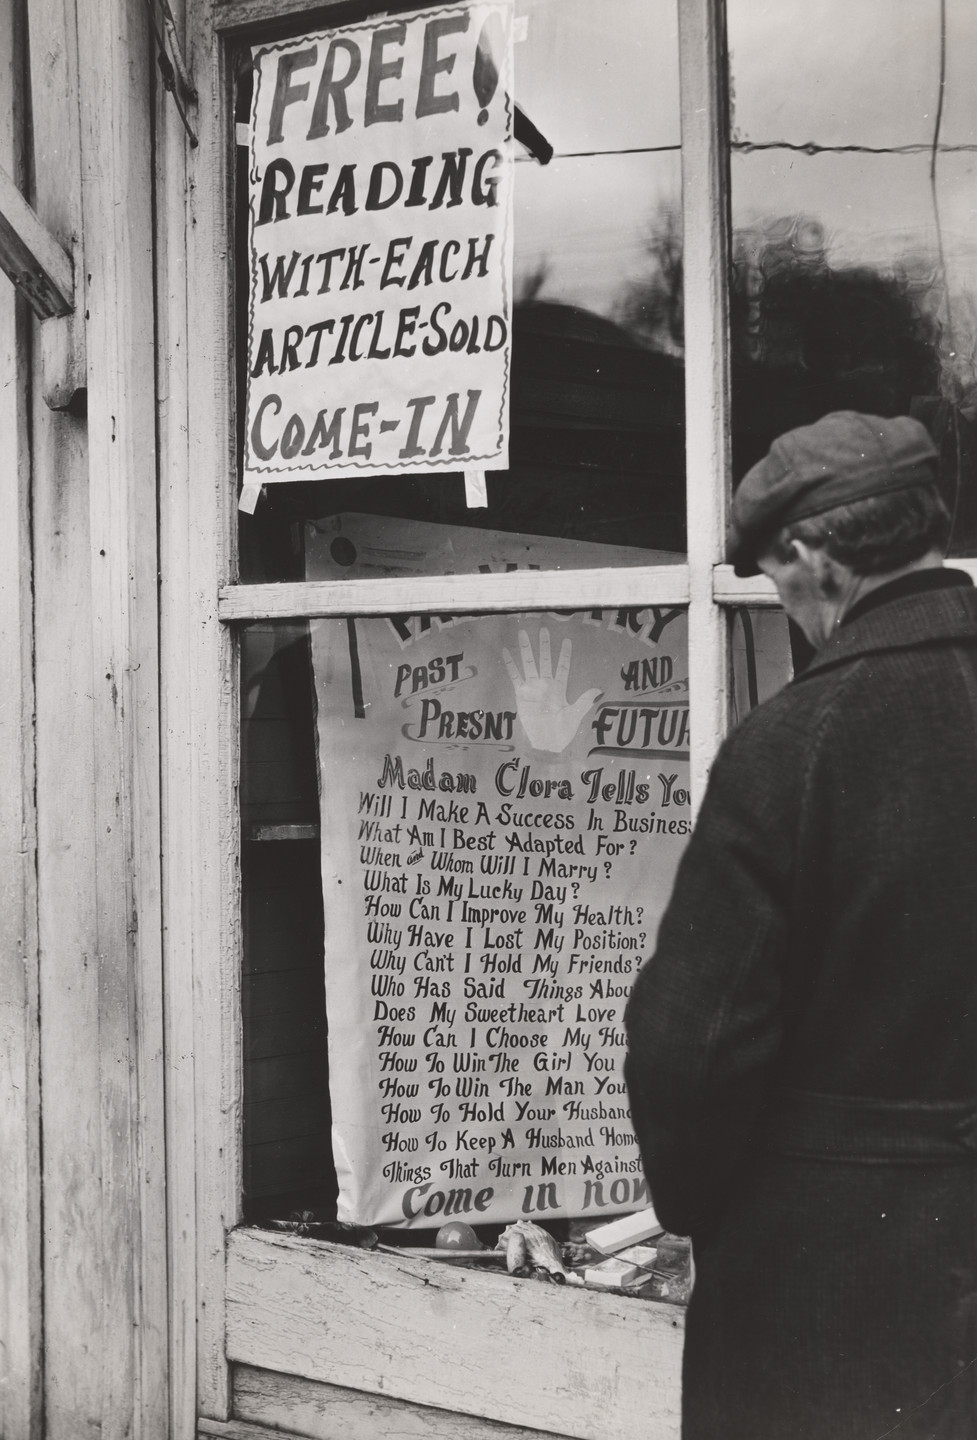 FREE!
READING
WITH-EACH
ARTICLE-SOLD
COME-IN
PALMISTRY
PAST AND
PRESNT FUTUR
Madam Clora Tells You
Will I Make A Success In Business
What Am I Best Adapted For?
When and Whom Will I Marry?
What Is My Lucky Day?
How Can I Improve My Health?
Why Have I Lost My Position?
Why Can't I Hold My Friends?
Who Has Said Things Abou
Does My Sweetheart Love
How Can I Choose My Hu
How To Win The Girl You
How To Win The Man You
How To Hold Your Husband
How To Keep A Husband Home
Things That Turn Men Against
Come in now